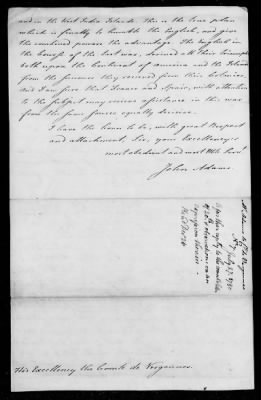 and in the West India Islands. This is the true plan
which is finally to humble the English, and give
the combined powers the advantage. The English in
the Course of the last war, derived all their triumphs
both upon the Continent of America and the Islands
from the succours they received from their Colonies.
And I am sure that France and Spain, with attention
to the subject may receive assistance in this war
from the same source equally decisive.
I have the honor to be, with great Respect
and attachment, Sir, your Excellency's
most obedient and most
John Adams
Mr Adams to Ct de Vergennes
July 27. 1780
His Excellency the Comte de Vergennes.